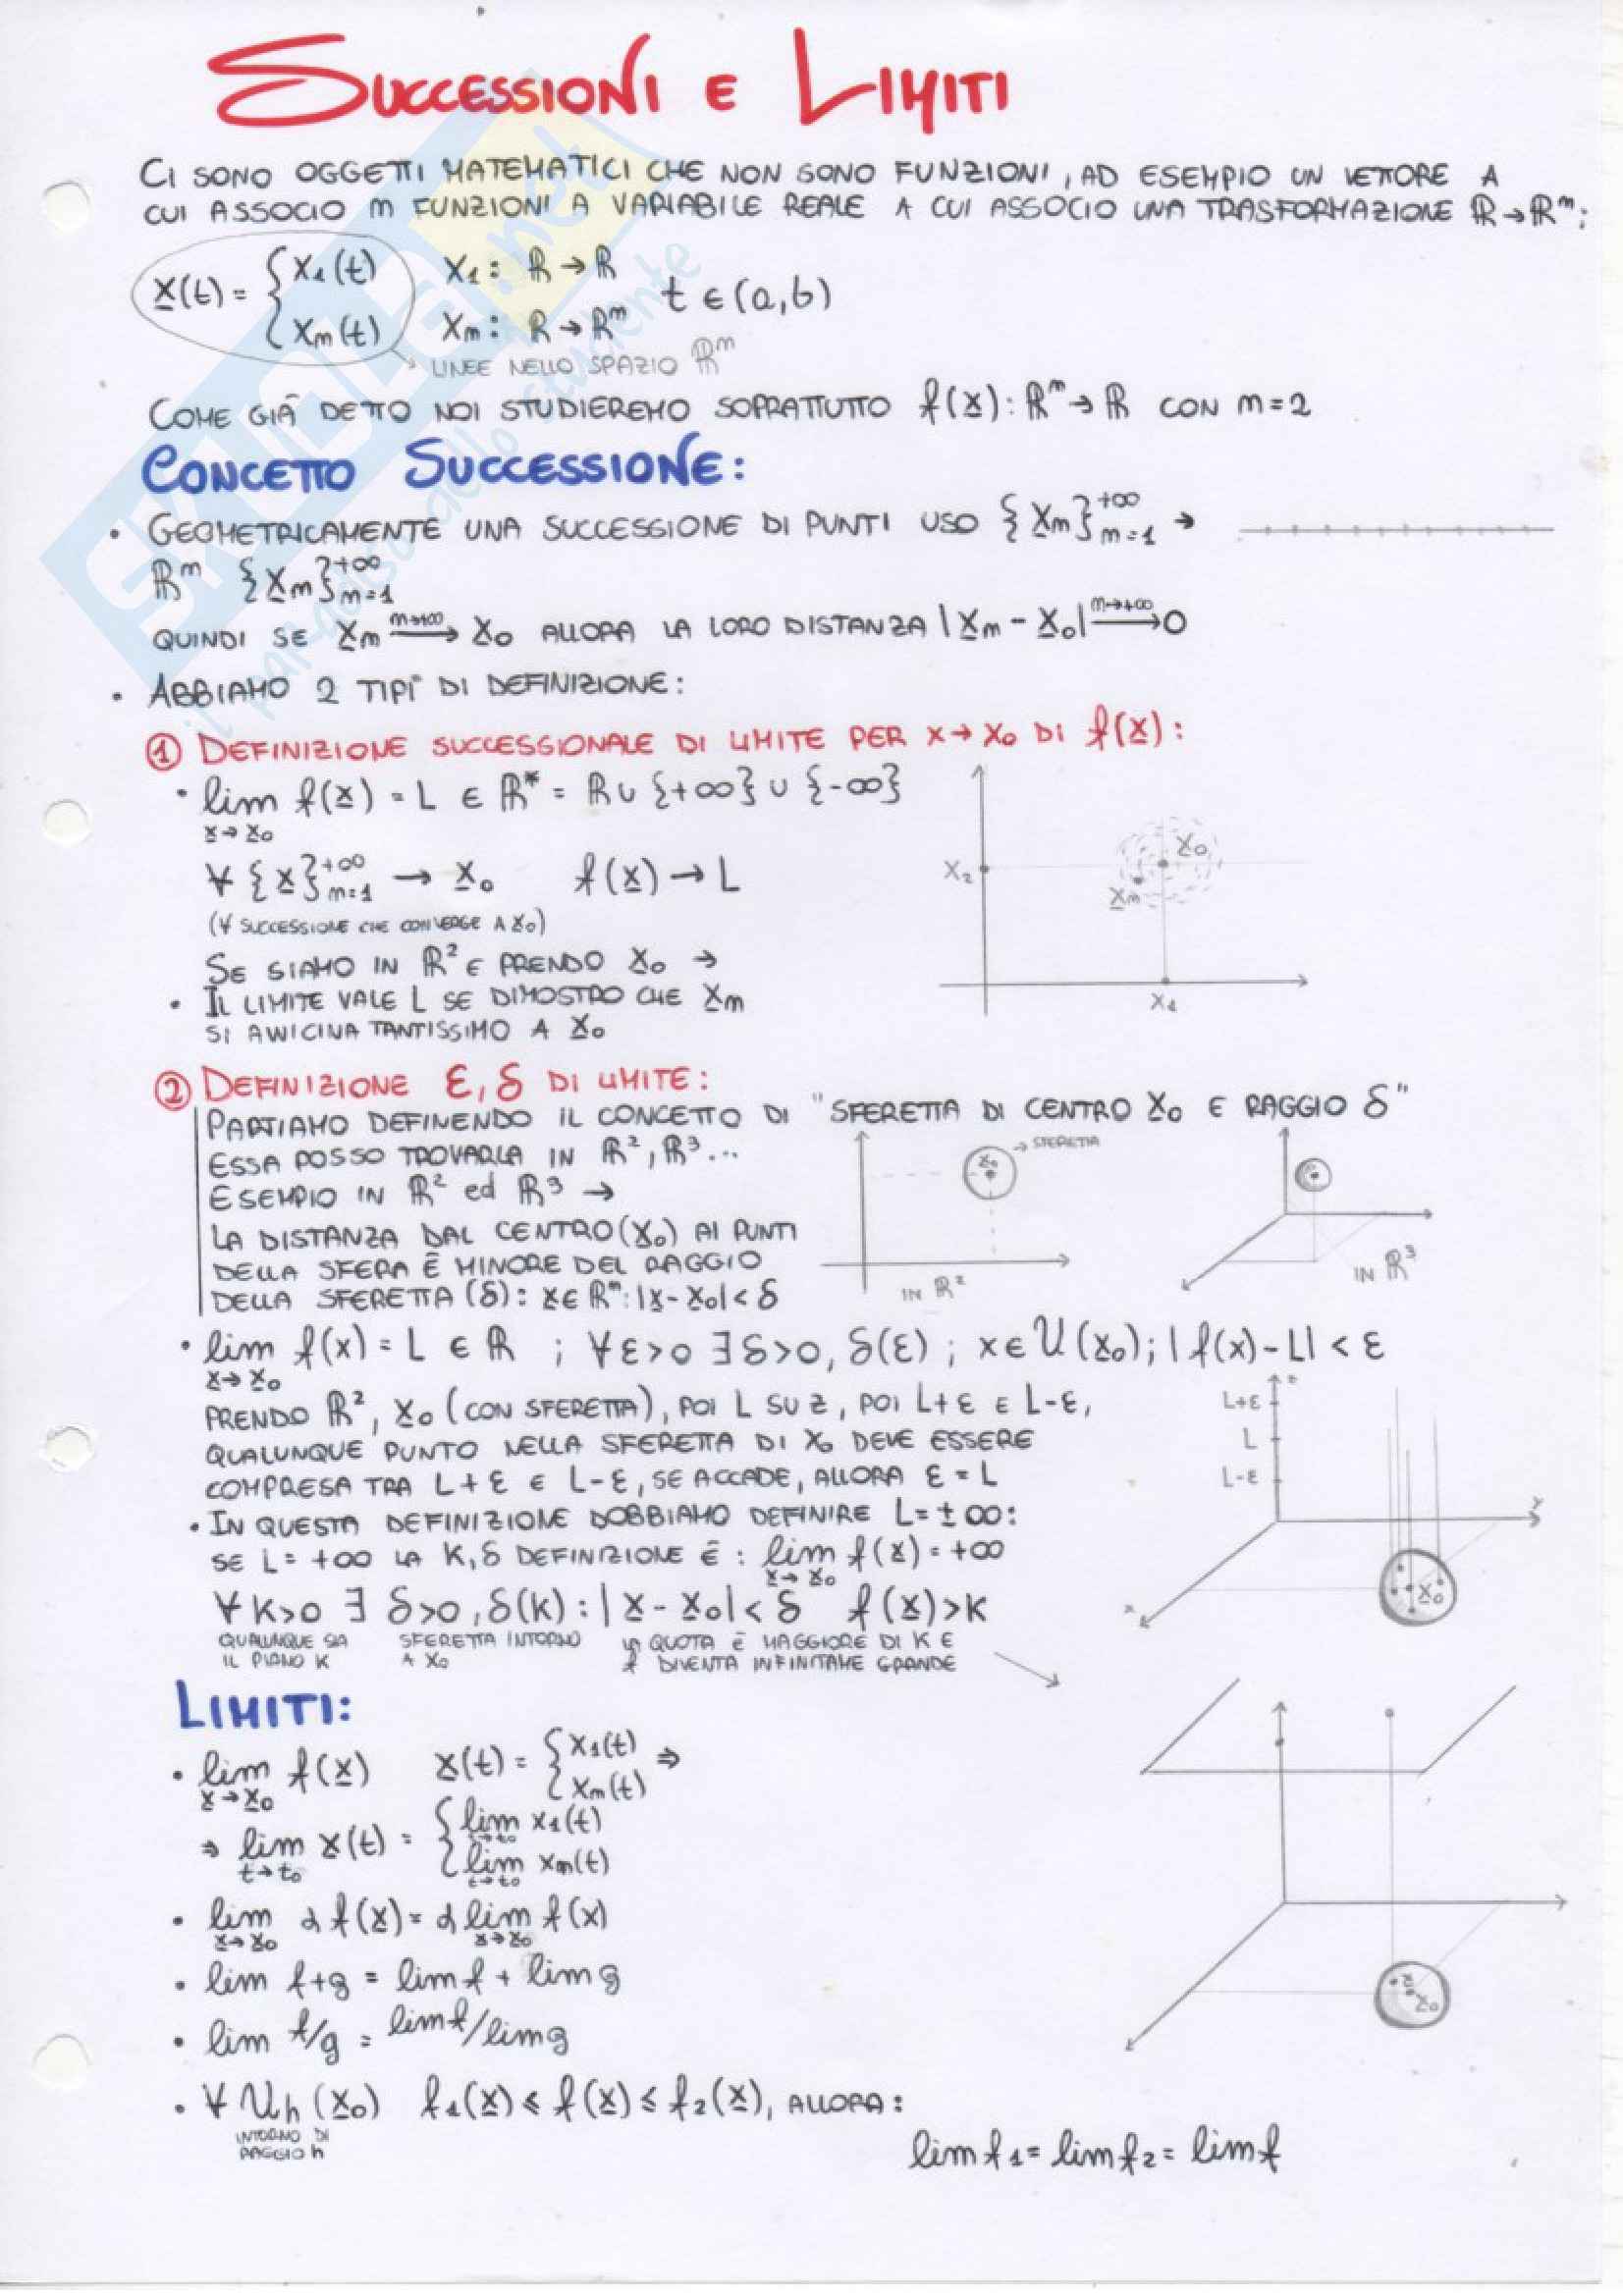 SUCCESSIONI E LIMITI
CI SONO OGGETTI MATEMATICI CHE NON SONO FUNZIONI, AD ESEMPIO UN VETTORE A
CUI ASSOCIO m FUNZIONI A VARIABILE REALE A CUI ASSOCIO UNA TRASFORMAZIONE ℝ→ℝᵐ;
x(t) = { x₁(t) x₁: ℝ→ℝ t ∈ (a,b)
xₘ(t) xₘ: ℝ→ℝᵐ
→ LINEE NELLO SPAZIO ℝᵐ
COME GIÀ DETTO NOI STUDIEREMO SOPRATTUTTO f(x): ℝᵐ→ℝ CON m=2
CONCETTO SUCCESSIONE:
• GEOMETRICAMENTE UNA SUCCESSIONE DI PUNTI USO {xₘ}⁺∞ₘ₌₁ →
ℝᵐ {xₘ}⁺∞ₘ₌₁
QUINDI SE xₘ —m→+∞→ x₀ ALLORA LA LORO DISTANZA |xₘ - x₀| —m→+∞→ 0
• ABBIAMO 2 TIPI DI DEFINIZIONE:
① DEFINIZIONE SUCCESSIONALE DI LIMITE PER x→x₀ DI f(x):
• lim f(x) = L ∈ ℝ* = ℝ ∪ {+∞} ∪ {-∞}
x→x₀
∀ {x}⁺∞ₘ₌₁ → x₀ f(x) → L
(∀ SUCCESSIONE CHE CONVERGE A x₀)
SE SIAMO IN ℝ² E PRENDO x₀ →
• IL LIMITE VALE L SE DIMOSTRO CHE xₘ
SI AVVICINA TANTISSIMO A x₀
x₂
x₀
xₘ
x₁
② DEFINIZIONE ε, δ DI LIMITE:
PARTIAMO DEFINENDO IL CONCETTO DI "SFERETTA DI CENTRO x₀ E RAGGIO δ"
ESSA POSSO TROVARLA IN ℝ², ℝ³...
ESEMPIO IN ℝ² ed ℝ³ →
LA DISTANZA DAL CENTRO (x₀) AI PUNTI
DELLA SFERA È MINORE DEL RAGGIO
DELLA SFERETTA (δ): x∈ℝᵐ: |x - x₀| < δ
x₀
→ SFERETTA
IN ℝ²
IN ℝ³
• lim f(x) = L ∈ ℝ ; ∀ε>0 ∃δ>0, δ(ε) ; x∈U(x₀); |f(x) - L| < ε
x→x₀
PRENDO ℝ², x₀ (CON SFERETTA), POI L SU z, POI L+ε E L-ε,
QUALUNQUE PUNTO NELLA SFERETTA DI x₀ DEVE ESSERE
COMPRESA TRA L+ε E L-ε, SE ACCADE, ALLORA ε = L
z
L+ε
L
L-ε
y
x
x₀
• IN QUESTA DEFINIZIONE DOBBIAMO DEFINIRE L=±∞:
SE L=+∞ LA K,δ DEFINIZIONE È: lim f(x) = +∞
x→x₀
∀K>0 ∃ δ>0, δ(k): |x - x₀| < δ f(x)>K
QUALUNQUE SIA SFERETTA INTORNO LA QUOTA È MAGGIORE DI K E
IL PIANO K A x₀ f DIVENTA INFINITAME GRANDE
LIMITI:
• lim f(x) x(t) = { x₁(t) ⇒
x→x₀ xₘ(t)
⇒ lim x(t) = { lim x₁(t)
t→t₀ t→t₀
lim xₘ(t)
t→t₀
• lim αf(x) = α lim f(x)
x→x₀ x→x₀
• lim f+g = lim f + lim g
• lim f/g = lim f/lim g
x
x₀
• ∀ Uₕ(x₀) f₁(x) ≤ f(x) ≤ f₂(x), ALLORA:
INTORNO DI
RAGGIO h
lim f₁ = lim f₂ = lim f
SKUOLA.net
il paradiso dello studente